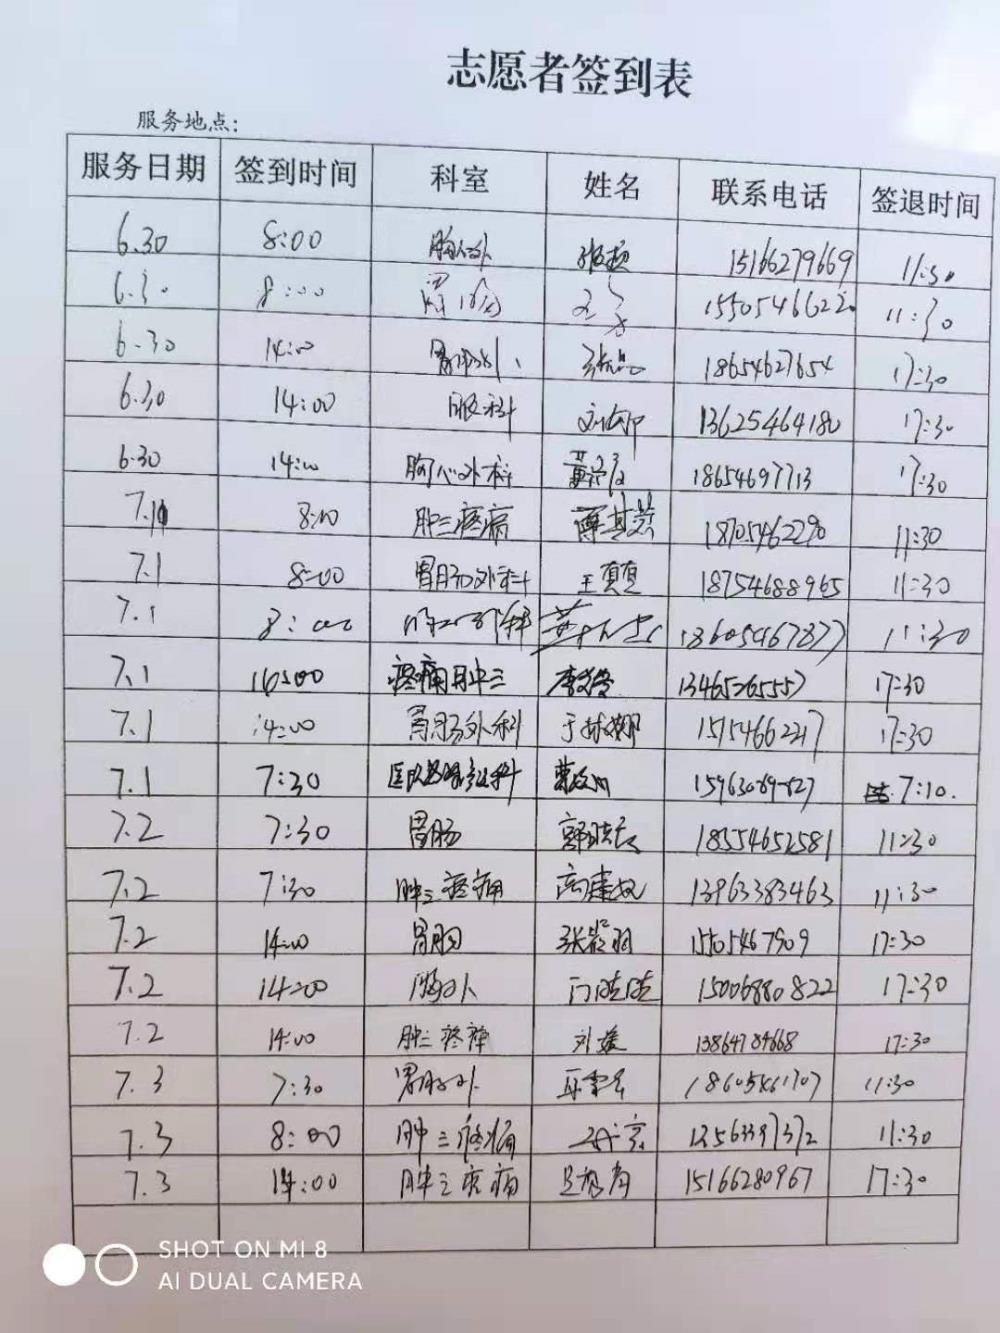 志愿者签到表
服务地点:
服务日期 签到时间 科室 姓名 联系电话 签退时间
6.30 8:00 胸外 15166279669 11:30
6.30 8:00 15505466222 11:30
6.30 14:00 18654627654 17:30
6.30 14:00 13625464180 17:30
6.30 14:00 胸心外科 18654697713 17:30
7.1 8:00 肿三疼痛 18705462290 11:30
7.1 8:00 胃肠外科 王真真 18754688965 11:30
7.1 8:00 18605467877 11:30
7.1 疼痛肿三 13465265557 17:30
7.1 14:00 胃肠外科 于林娜 15154662217 17:30
7.1 7:30 7:10.
7.2 7:30 胃肠 18554652581 11:30
7.2 7:30 肿三疼痛 高建敏 13963383463 11:30
7.2 14:00 胃肠 张岩羽 15505467909 17:30
7.2 14:00 胸外 15006880822 17:30
7.2 14:00 肿三疼痛 刘媛 13864784668 17:30
7.3 7:30 胃肠外 18605461707 11:30
7.3 8:00 肿三疼痛 13563397372 11:30
7.3 14:00 肿三疼痛 15166280967 17:30
SHOT ON MI 8
AI DUAL CAMERA